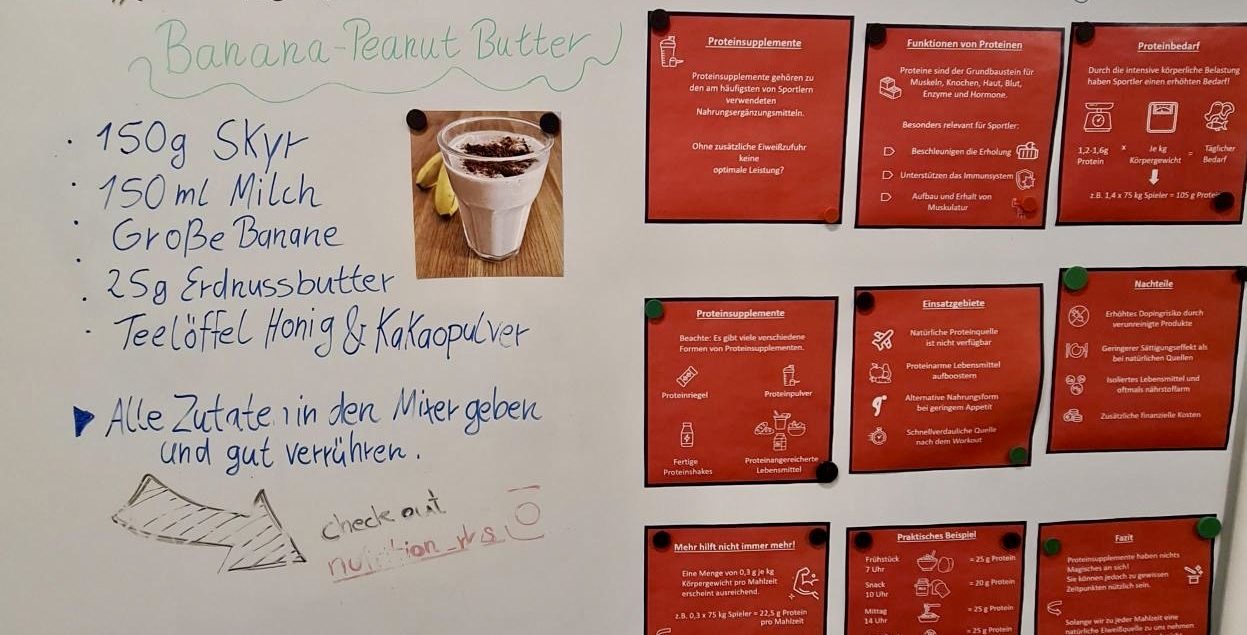 Banana-Peanut Butter
150g Skyr
150ml Milch
Große Banane
25g Erdnussbutter
Teelöffel Honig & Kakaopulver
Alle Zutate in den Mixer geben
und gut verrühren.
check out
Proteinsupplemente
Proteinsupplemente gehören zu
den am häufigsten von Sportlern
verwendeten
Nahrungsergänzungsmitteln.
Ohne zusätzliche Eiweißzufuhr
keine
optimale Leistung?
Funktionen von Proteinen
Proteine sind der Grundbaustein für
Muskeln, Knochen, Haut, Blut,
Enzyme und Hormone.
Besonders relevant für Sportler:
Beschleunigen die Erholung
Unterstützen das Immunsystem
Aufbau und Erhalt von
Muskulatur
Proteinbedarf
Durch die intensive körperliche Belastung
haben Sportler einen erhöhten Bedarf!
1,2-1,6g x Je kg = Täglicher
Protein Körpergewicht Bedarf
z.B. 1,4 x 75 kg Spieler = 105 g
Proteinsupplemente
Beachte: Es gibt viele verschiedene
Formen von Proteinsupplementen.
Proteinriegel Proteinpulver
Fertige Proteinangereicherte
Proteinshakes Lebensmittel
Einsatzgebiete
Natürliche Proteinquelle
ist nicht verfügbar
Proteinarme Lebensmittel
aufboostern
Alternative Nahrungsform
bei geringem Appetit
Schnellverdauliche Quelle
nach dem Workout
Nachteile
Erhöhtes Dopingrisiko durch
verunreinigte Produkte
Geringerer Sättigungseffekt als
bei natürlichen Quellen
Isoliertes Lebensmittel und
oftmals nährstoffarm
Zusätzliche finanzielle Kosten
Mehr hilft nicht immer mehr!
Eine Menge von 0,3 g je kg
Körpergewicht pro Mahlzeit
erscheint ausreichend.
z.B. 0,3 x 75 kg Spieler = 22,5 g Protein
pro Mahlzeit
Praktisches Beispiel
Frühstück = 25 g Protein
7 Uhr
Snack = 20 g Protein
10 Uhr
Mittag = 25 g Protein
14 Uhr
= 25 g Protein
Fazit
Proteinsupplemente haben nichts
Magisches an sich!
Sie können jedoch zu gewissen
Zeitpunkten nützlich sein.
Solange wir zu jeder Mahlzeit eine
natürliche Eiweißquelle zu uns nehmen